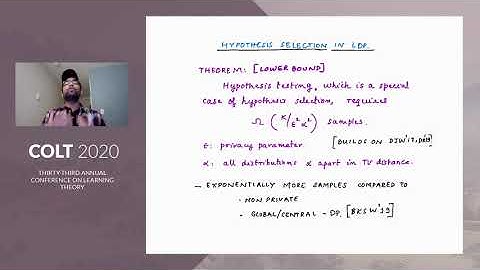 COLT 2020
THIRTY-THIRD ANNUAL
CONFERENCE ON LEARNING
THEORY
HYPOTHESIS SELECTION IN LDP
THEOREM: [LOWER BOUND]
Hypothesis testing, which is a special
case of hypothesis selection, requires
Ω (K/ε²α²) samples.
ε: privacy parameter
[BUILDS ON DJW'17,
α: all distributions α apart in TV distance.
— EXPONENTIALLY MORE SAMPLES COMPARED TO
- NON PRIVATE
- GLOBAL/CENTRAL - DP. [BKSW'19]